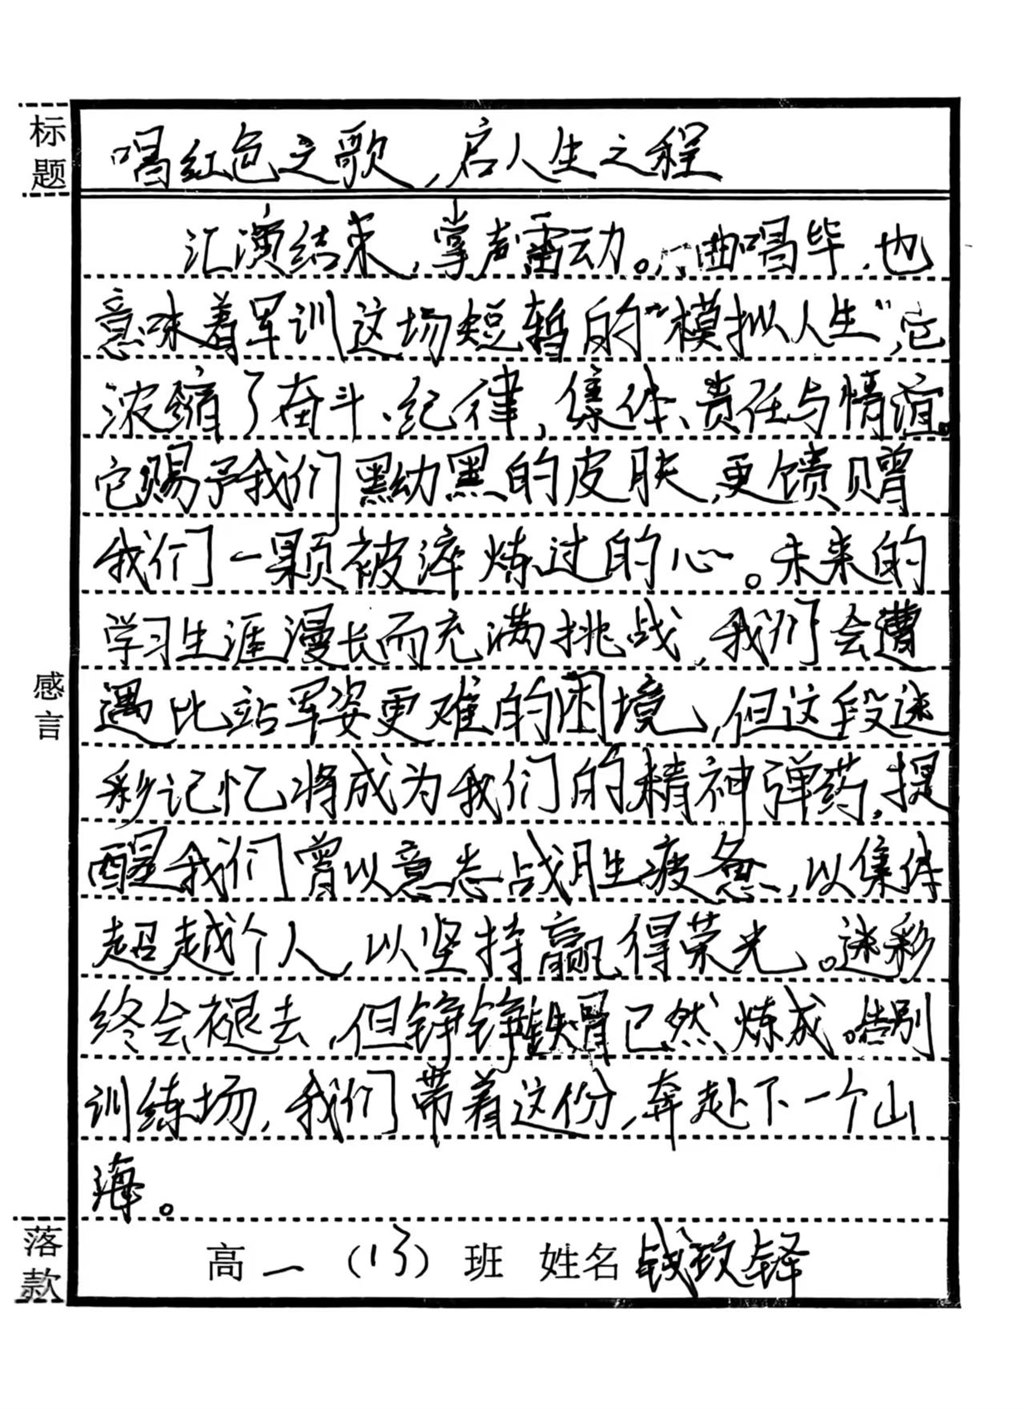 标题
唱红色之歌，启人生之程
汇演结束，掌声雷动。一曲唱毕，也
意味着军训这场短暂的“模拟人生”，它
浓缩了奋斗、纪律，集体、责任与情谊。
它赐予我们黝黑的皮肤，更馈赠
我们一颗被淬炼过的心。未来的
学习生涯漫长而充满挑战，我们会遭
遇比站军姿更难的困境，但这段迷
彩记忆将成为我们的精神弹药，提
醒我们曾以意志战胜疲惫，以集体
超越个人，以坚持赢得荣光。迷彩
终会褪去，但铮铮铁骨已然炼成。告别
训练场，我们带着这份，奔赴下一个山
海。
感言
落款
高一（13）班 姓名 钱玟铎